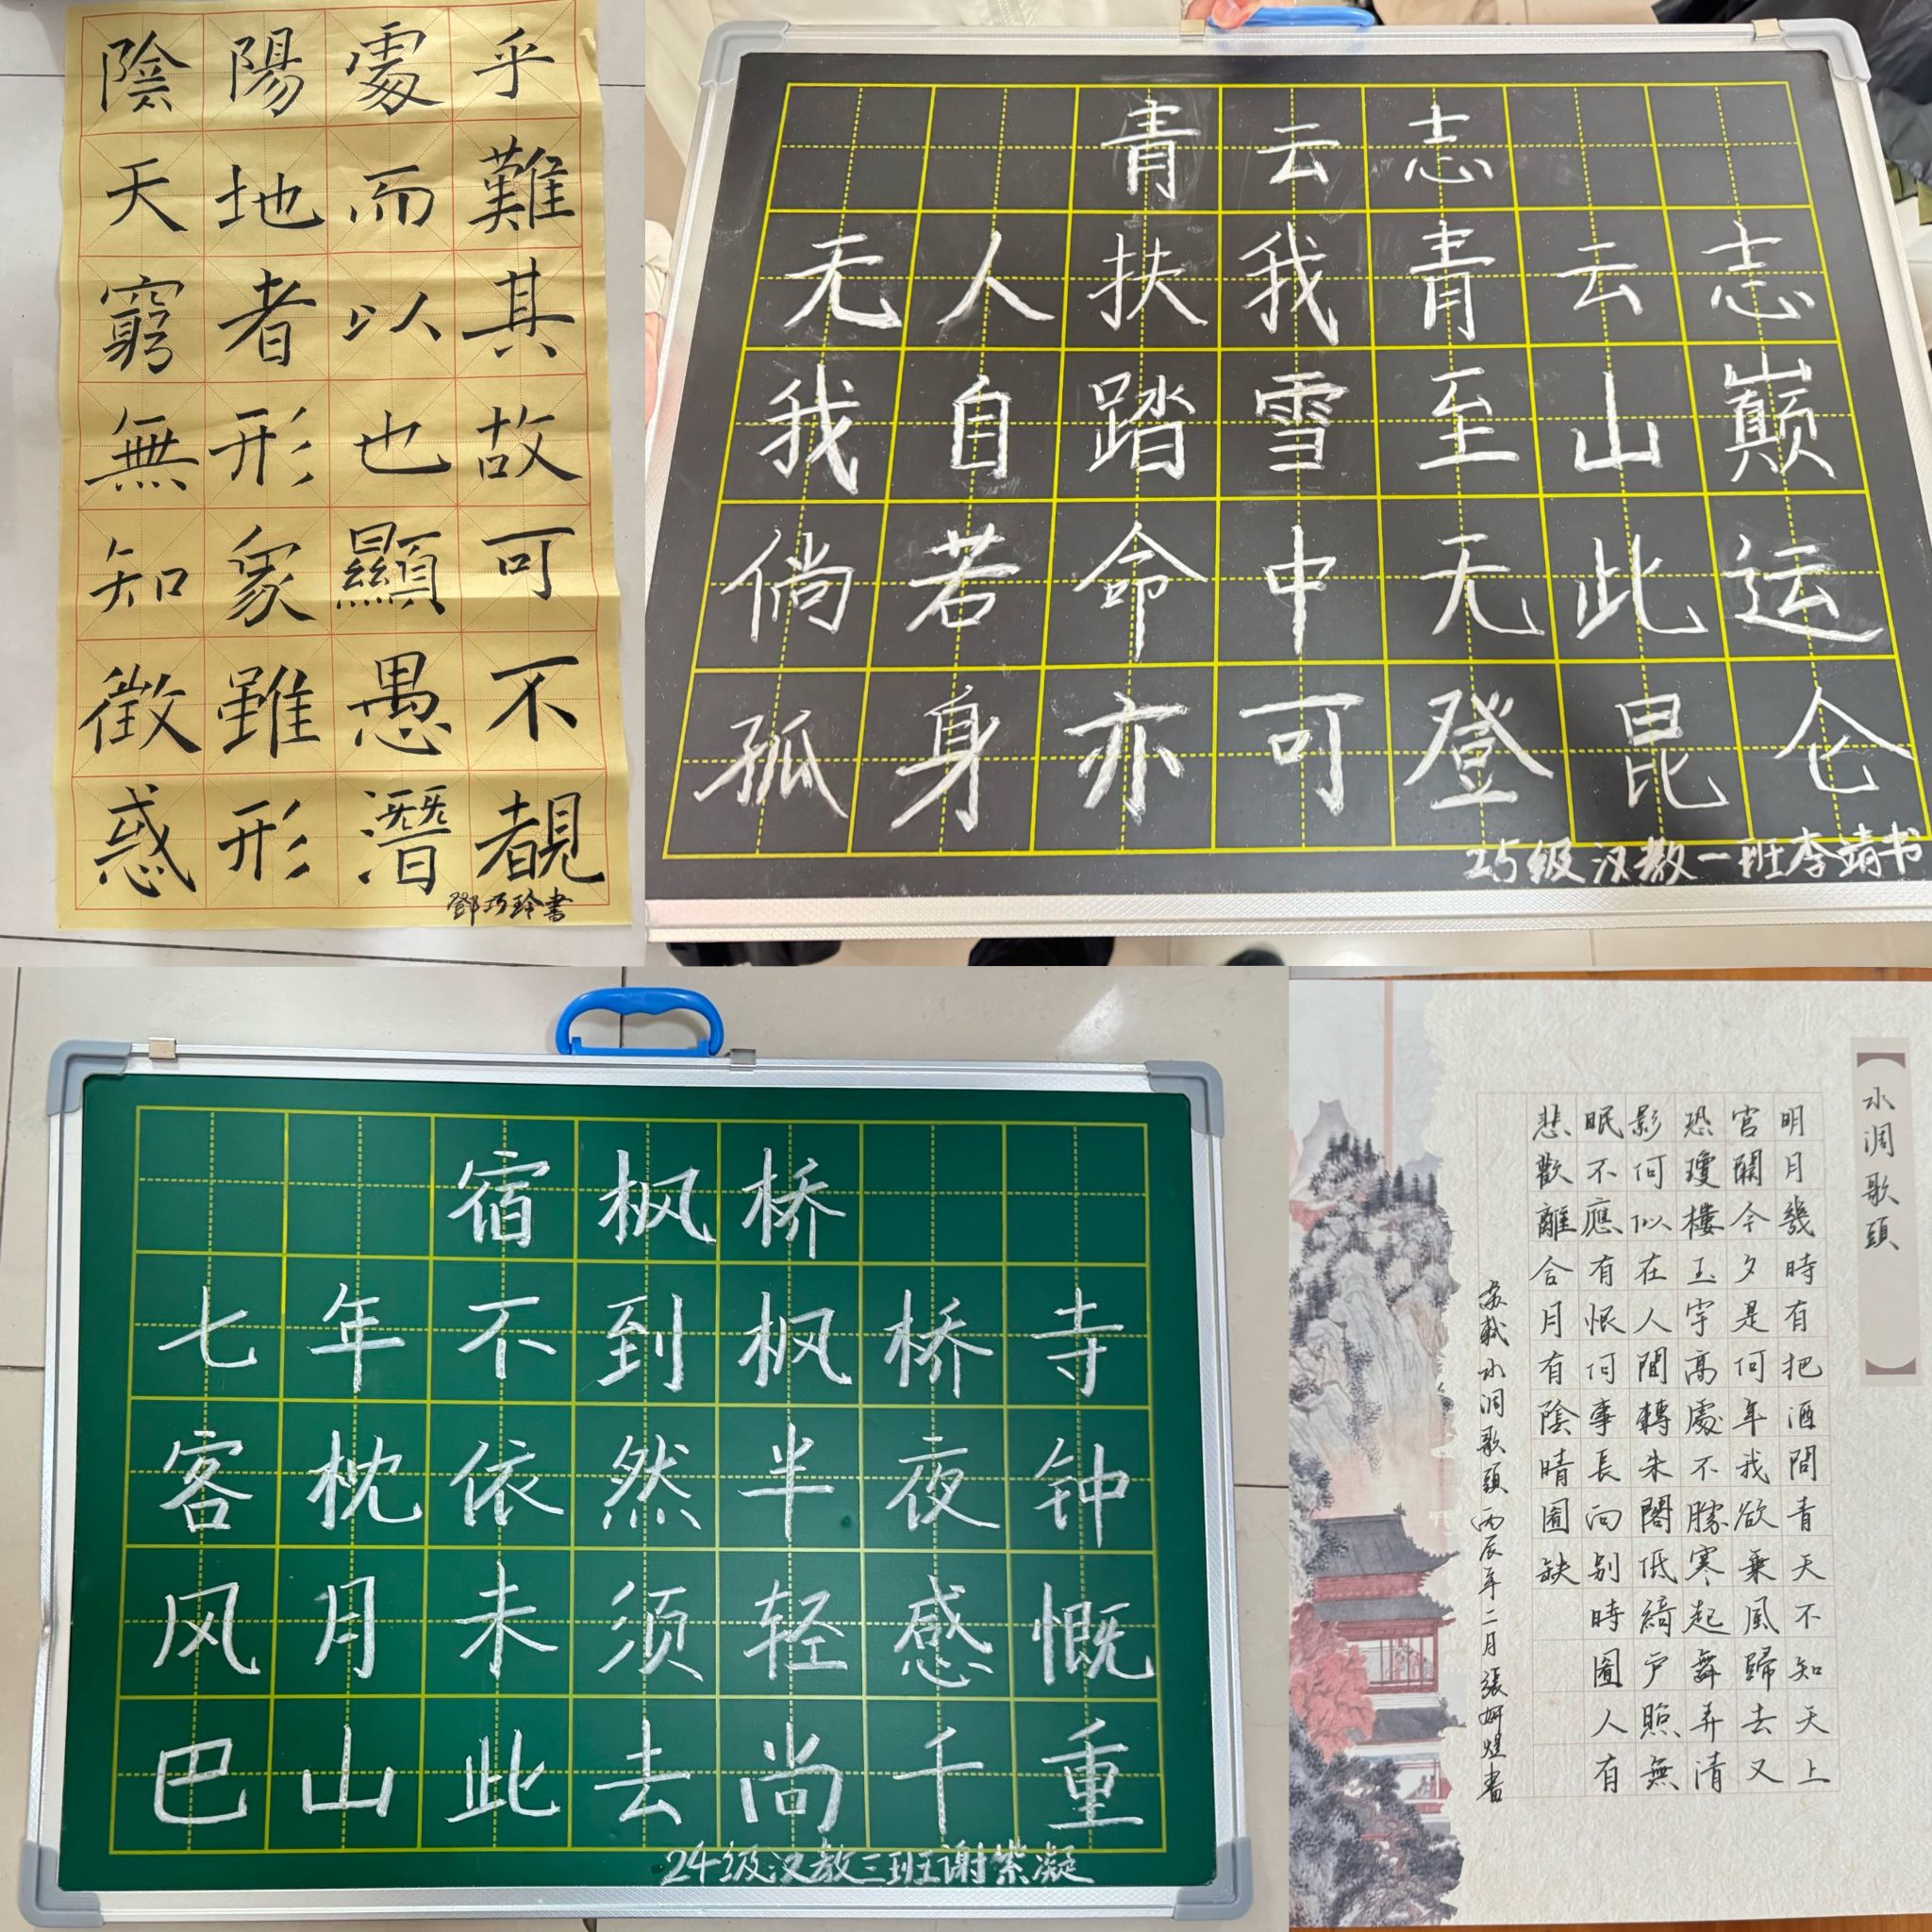 陰陽處乎
天地而難
窮者以其
無形也故
知象顯可
徵雖愚不
惑形潛覩
鄧巧玲書
青云志
无人扶我青云志
我自踏雪至山巅
倘若命中无此运
孤身亦可登昆仑
25级汉教一班李靖书
宿枫桥
七年不到枫桥寺
客枕依然半夜钟
风月未须轻感慨
巴山此去尚千重
24级汉教三班谢紫凝
水調歌頭
明月幾時有把酒問青天不知天上
宫闕今夕是何年我欲乘風歸去又
恐瓊樓玉宇高處不勝寒起舞弄清
影何似在人間轉朱閣低綺户照無
眠不應有恨何事長向别時圓人有
悲歡離合月有陰晴圓缺
蘇軾水調歌頭丙辰年二月張妍煜書